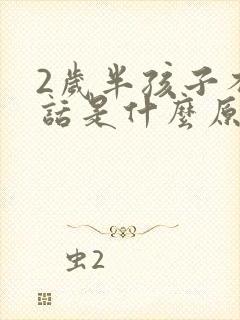 2歲半孩子
話是什麼原
虫2